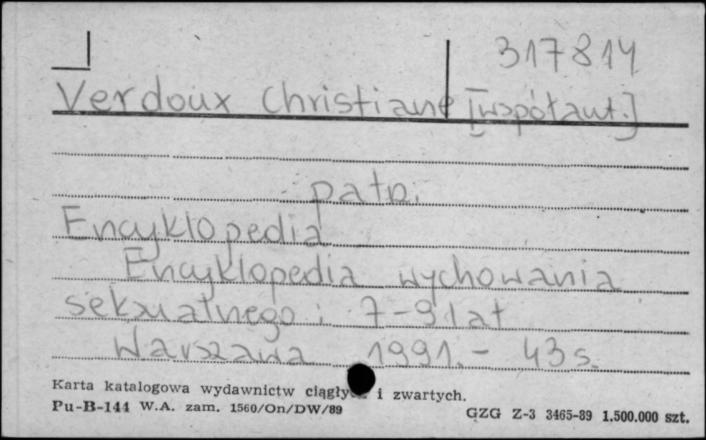 317814
Verdoux Christiane [współaut.]
patrz.
Encyklopedia
Encyklopedia wychowania
seksualnego : 7-9 lat
Warszawa 1991.- 43 s.
Karta katalogowa wydawnictw ciągły i zwartych.
Pu-B-144 W.A. zam. 1560/On/DW/89
GZG Z-3 3465-89 1.500.000 szt.